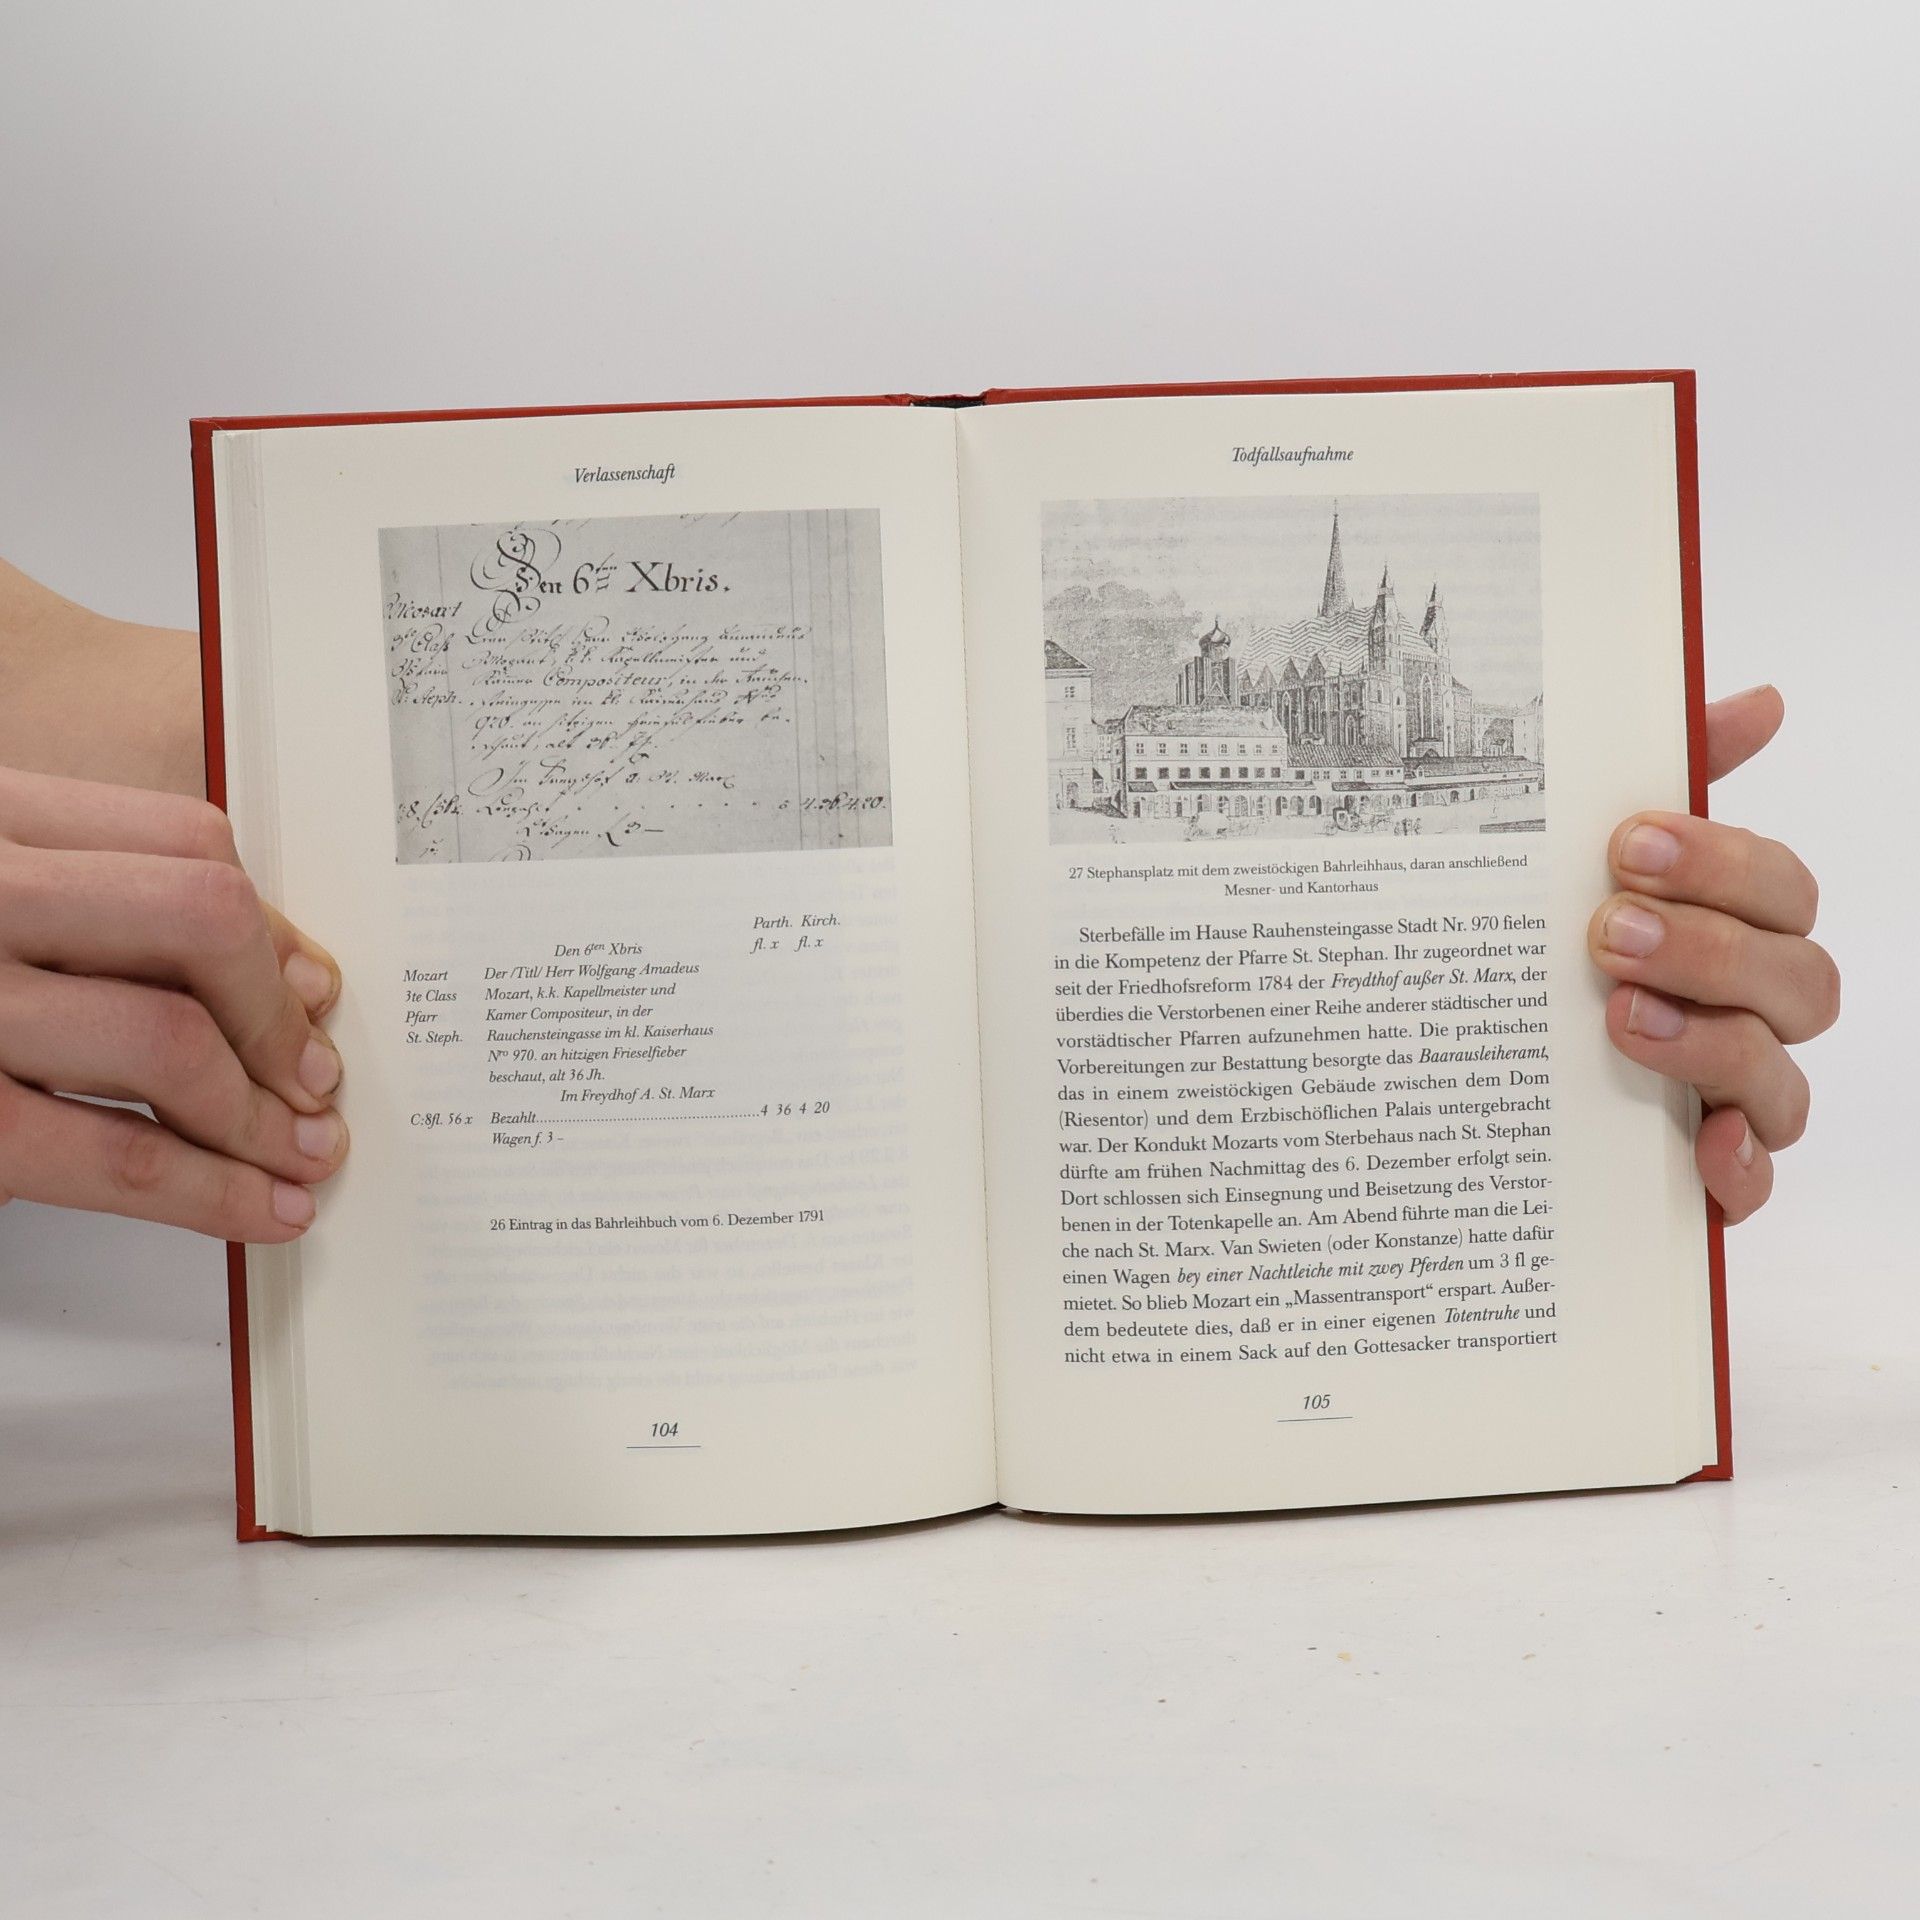 Verlassenschaft
Den 6ten Xbris.
Mozart
3te Class
St. Steph.
Mozart, k.k. Kapellmeister und
Kammer Compositeur, in der Rauchen-
Im Freydhof a. St. Marx
4. 36. 4. 20.
Wagen f 3 —
Parth. Kirch.
Den 6ten Xbris fl. x fl. x
Mozart Der /Titl/ Herr Wolfgang Amadeus
3te Class Mozart, k.k. Kapellmeister und
Pfarr Kamer Compositeur, in der
St. Steph. Rauchensteingasse im kl. Kaiserhaus
Nro 970. an hitzigen Frieselfieber
beschaut, alt 36 Jh.
Im Freydhof A. St. Marx
C:8fl. 56 x Bezahlt..........................................4 36 4 20
Wagen f. 3 –
26 Eintrag in das Bahrleihbuch vom 6. Dezember 1791
104
Todfallsaufnahme
27 Stephansplatz mit dem zweistöckigen Bahrleihhaus, daran anschließend
Mesner- und Kantorhaus
Sterbefälle im Hause Rauhensteingasse Stadt Nr. 970 fielen
in die Kompetenz der Pfarre St. Stephan. Ihr zugeordnet war
seit der Friedhofsreform 1784 der Freydthof außer St. Marx, der
überdies die Verstorbenen einer Reihe anderer städtischer und
vorstädtischer Pfarren aufzunehmen hatte. Die praktischen
Vorbereitungen zur Bestattung besorgte das Baarausleiheramt,
das in einem zweistöckigen Gebäude zwischen dem Dom
(Riesentor) und dem Erzbischöflichen Palais untergebracht
war. Der Kondukt Mozarts vom Sterbehaus nach St. Stephan
dürfte am frühen Nachmittag des 6. Dezember erfolgt sein.
Dort schlossen sich Einsegnung und Beisetzung des Verstor-
benen in der Totenkapelle an. Am Abend führte man die Lei-
che nach St. Marx. Van Swieten (oder Konstanze) hatte dafür
einen Wagen bey einer Nachtleiche mit zwey Pferden um 3 fl ge-
mietet. So blieb Mozart ein „Massentransport“ erspart. Außer-
dem bedeutete dies, daß er in einer eigenen Totentruhe und
nicht etwa in einem Sack auf den Gottesacker transportiert
105